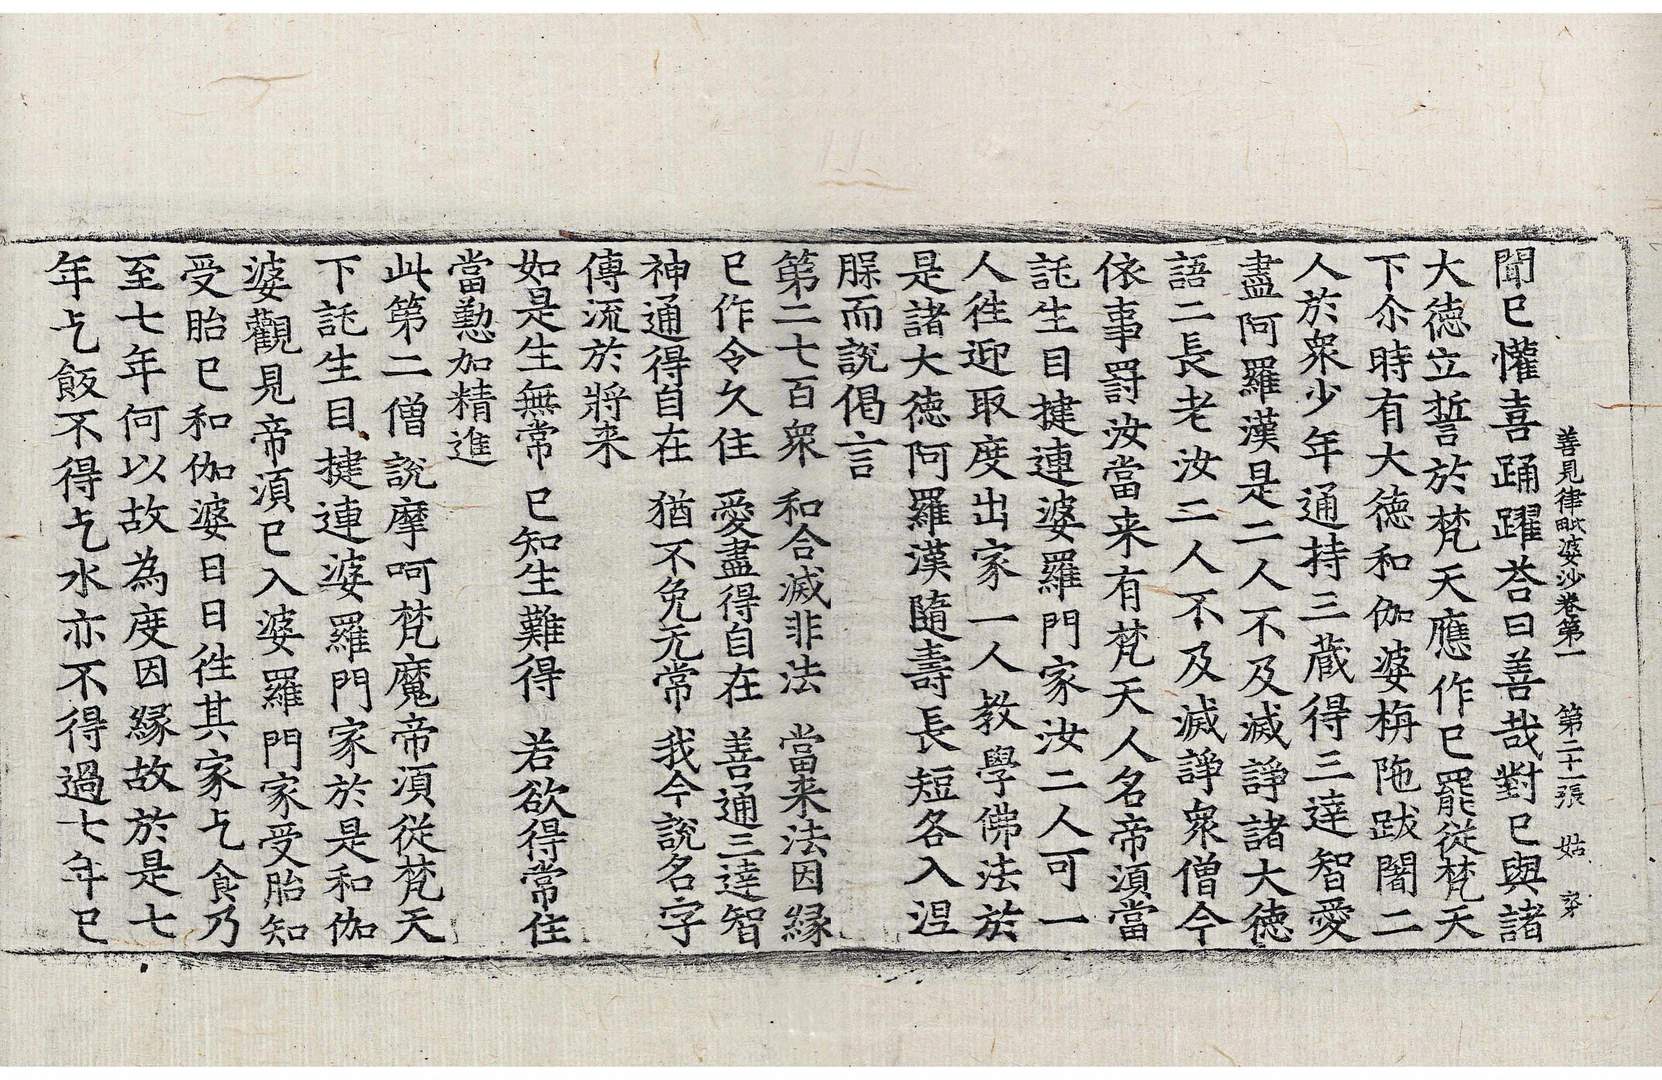 善見律毗婆沙卷第一 第二十一張 姑
聞已懽喜踊躍荅曰善哉對已與諸
大徳立誓於梵天應作已罷從梵天
下尒時有大徳和伽婆栴陁跋闍二
人於衆少年通持三蔵得三達智愛
盡阿羅漢是二人不及滅諍諸大徳
語二長老汝二人不及滅諍衆僧今
依事罸汝當来有梵天人名帝湏當
託生目揵連婆羅門家汝二人可一
人徃迎取度出家一人教學佛法於
是諸大徳阿羅漢隨壽長短各入涅
脲而說偈言
第二七百衆 和合滅非法 當来法因縁
已作令久住 愛盡得自在 善通三達智
神通得自在 猶不免无常 我今說名字
傳流於將来
如是生無常 已知生難得 若欲得常住
當懃加精進
此第二僧說摩呵梵魔帝湏從梵天
下託生目揵連婆羅門家於是和伽
婆觀見帝湏已入婆羅門家受胎知
受胎已和伽婆日日徃其家乞食乃
至七年何以故為度因縁故於是七
年乞飯不得乞水亦不得過七年已